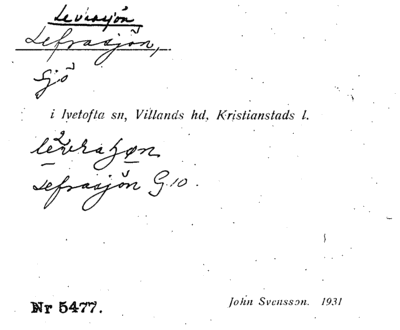 Levrasjön
Lefrasjön,
sjö
i Ivetofta sn, Villands hd, Kristianstads l.
Lefrasjön G.10.
Nr 5477.
John Svensson. 1931